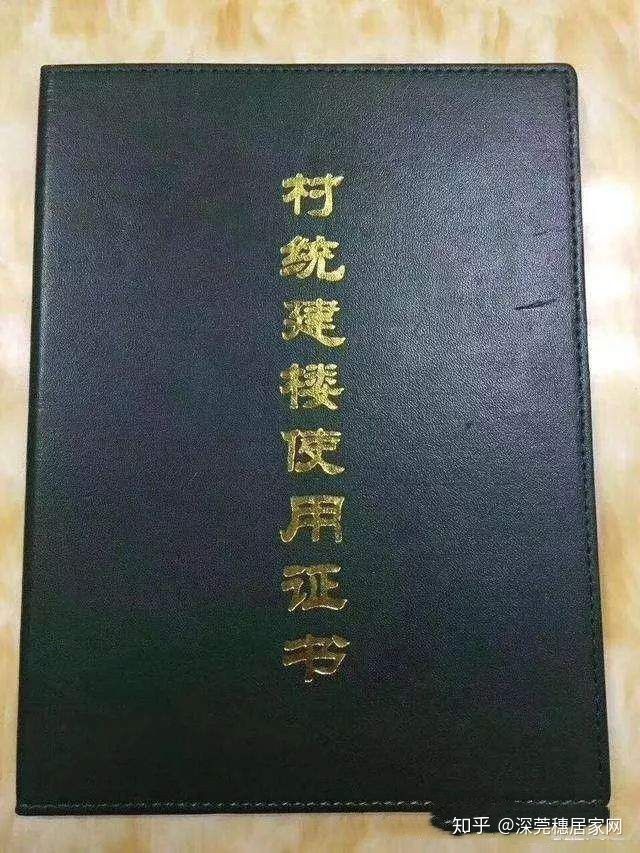 村统建楼使用证书
知乎 @深莞穗居家网